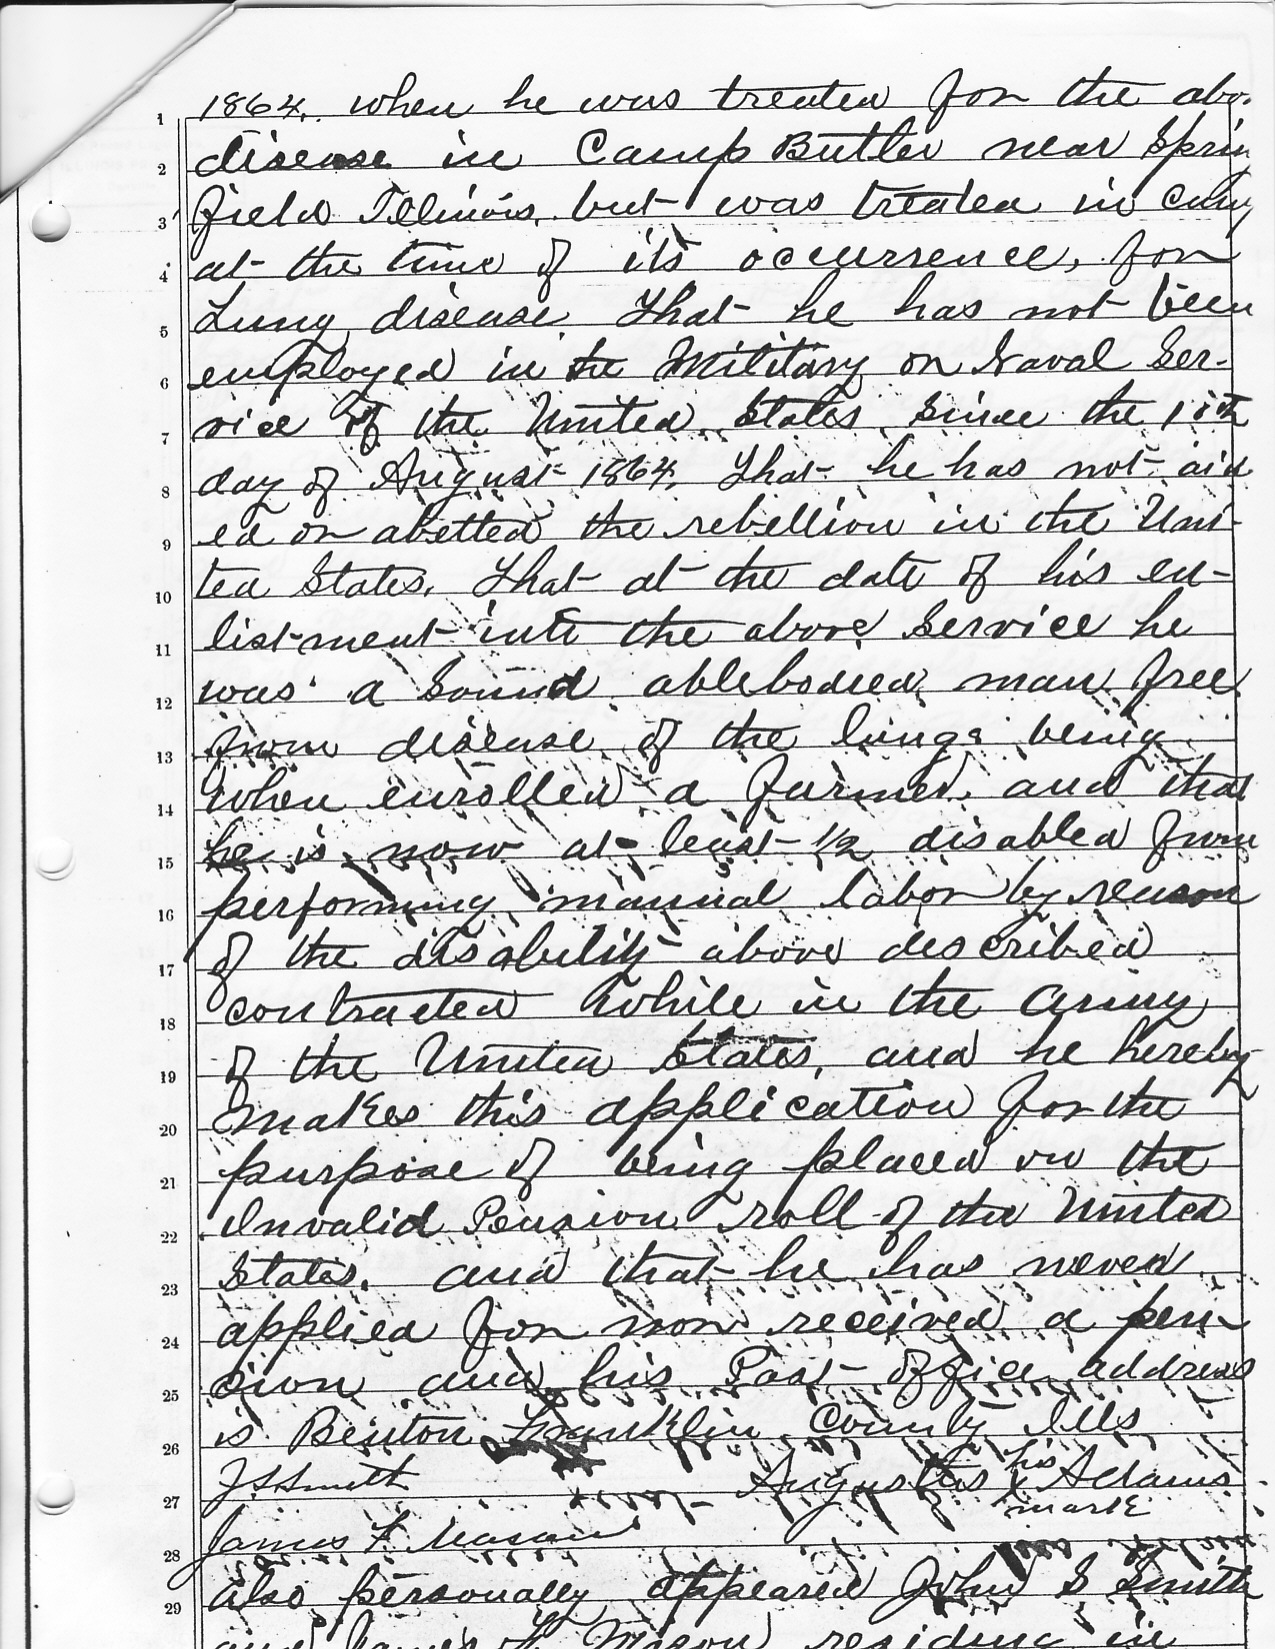 1 1864, when he was treated for the abo
2 disease in Camp Butler near Sprin
3 field Illinois, but was treated in Camp
4 at the time of its occurrence, for
5 Lung disease. That he has not been
6 employed in the Military or Naval Ser-
7 vice of the United States since the 10th
8 day of August 1864, That he has not aid
9 ed or abetted the rebellion in the Uni-
10 ted States. That at the date of his en-
11 listment into the above Service he
12 was a Sound ablebodied man free
13 from disease of the lungs being
14 when enrolled a farmer, and that
15 he is now at least 1/2 disabled from
16 performing manual labor by reason
17 of the disability above described
18 contracted while in the army
19 of the United States, and he hereby
20 makes this application for the
21 purpose of being placed on the
22 Invalid Pension roll of the United
23 States. and that he has never
24 applied for nor received a pen
25 sion and his Post office address
26 is Benton Franklin County Ills
his
27 J S Smith Augustas X Adams
mark
28 James F Mason
29 also personally appeared John S Smith
and James F. Mason residing in